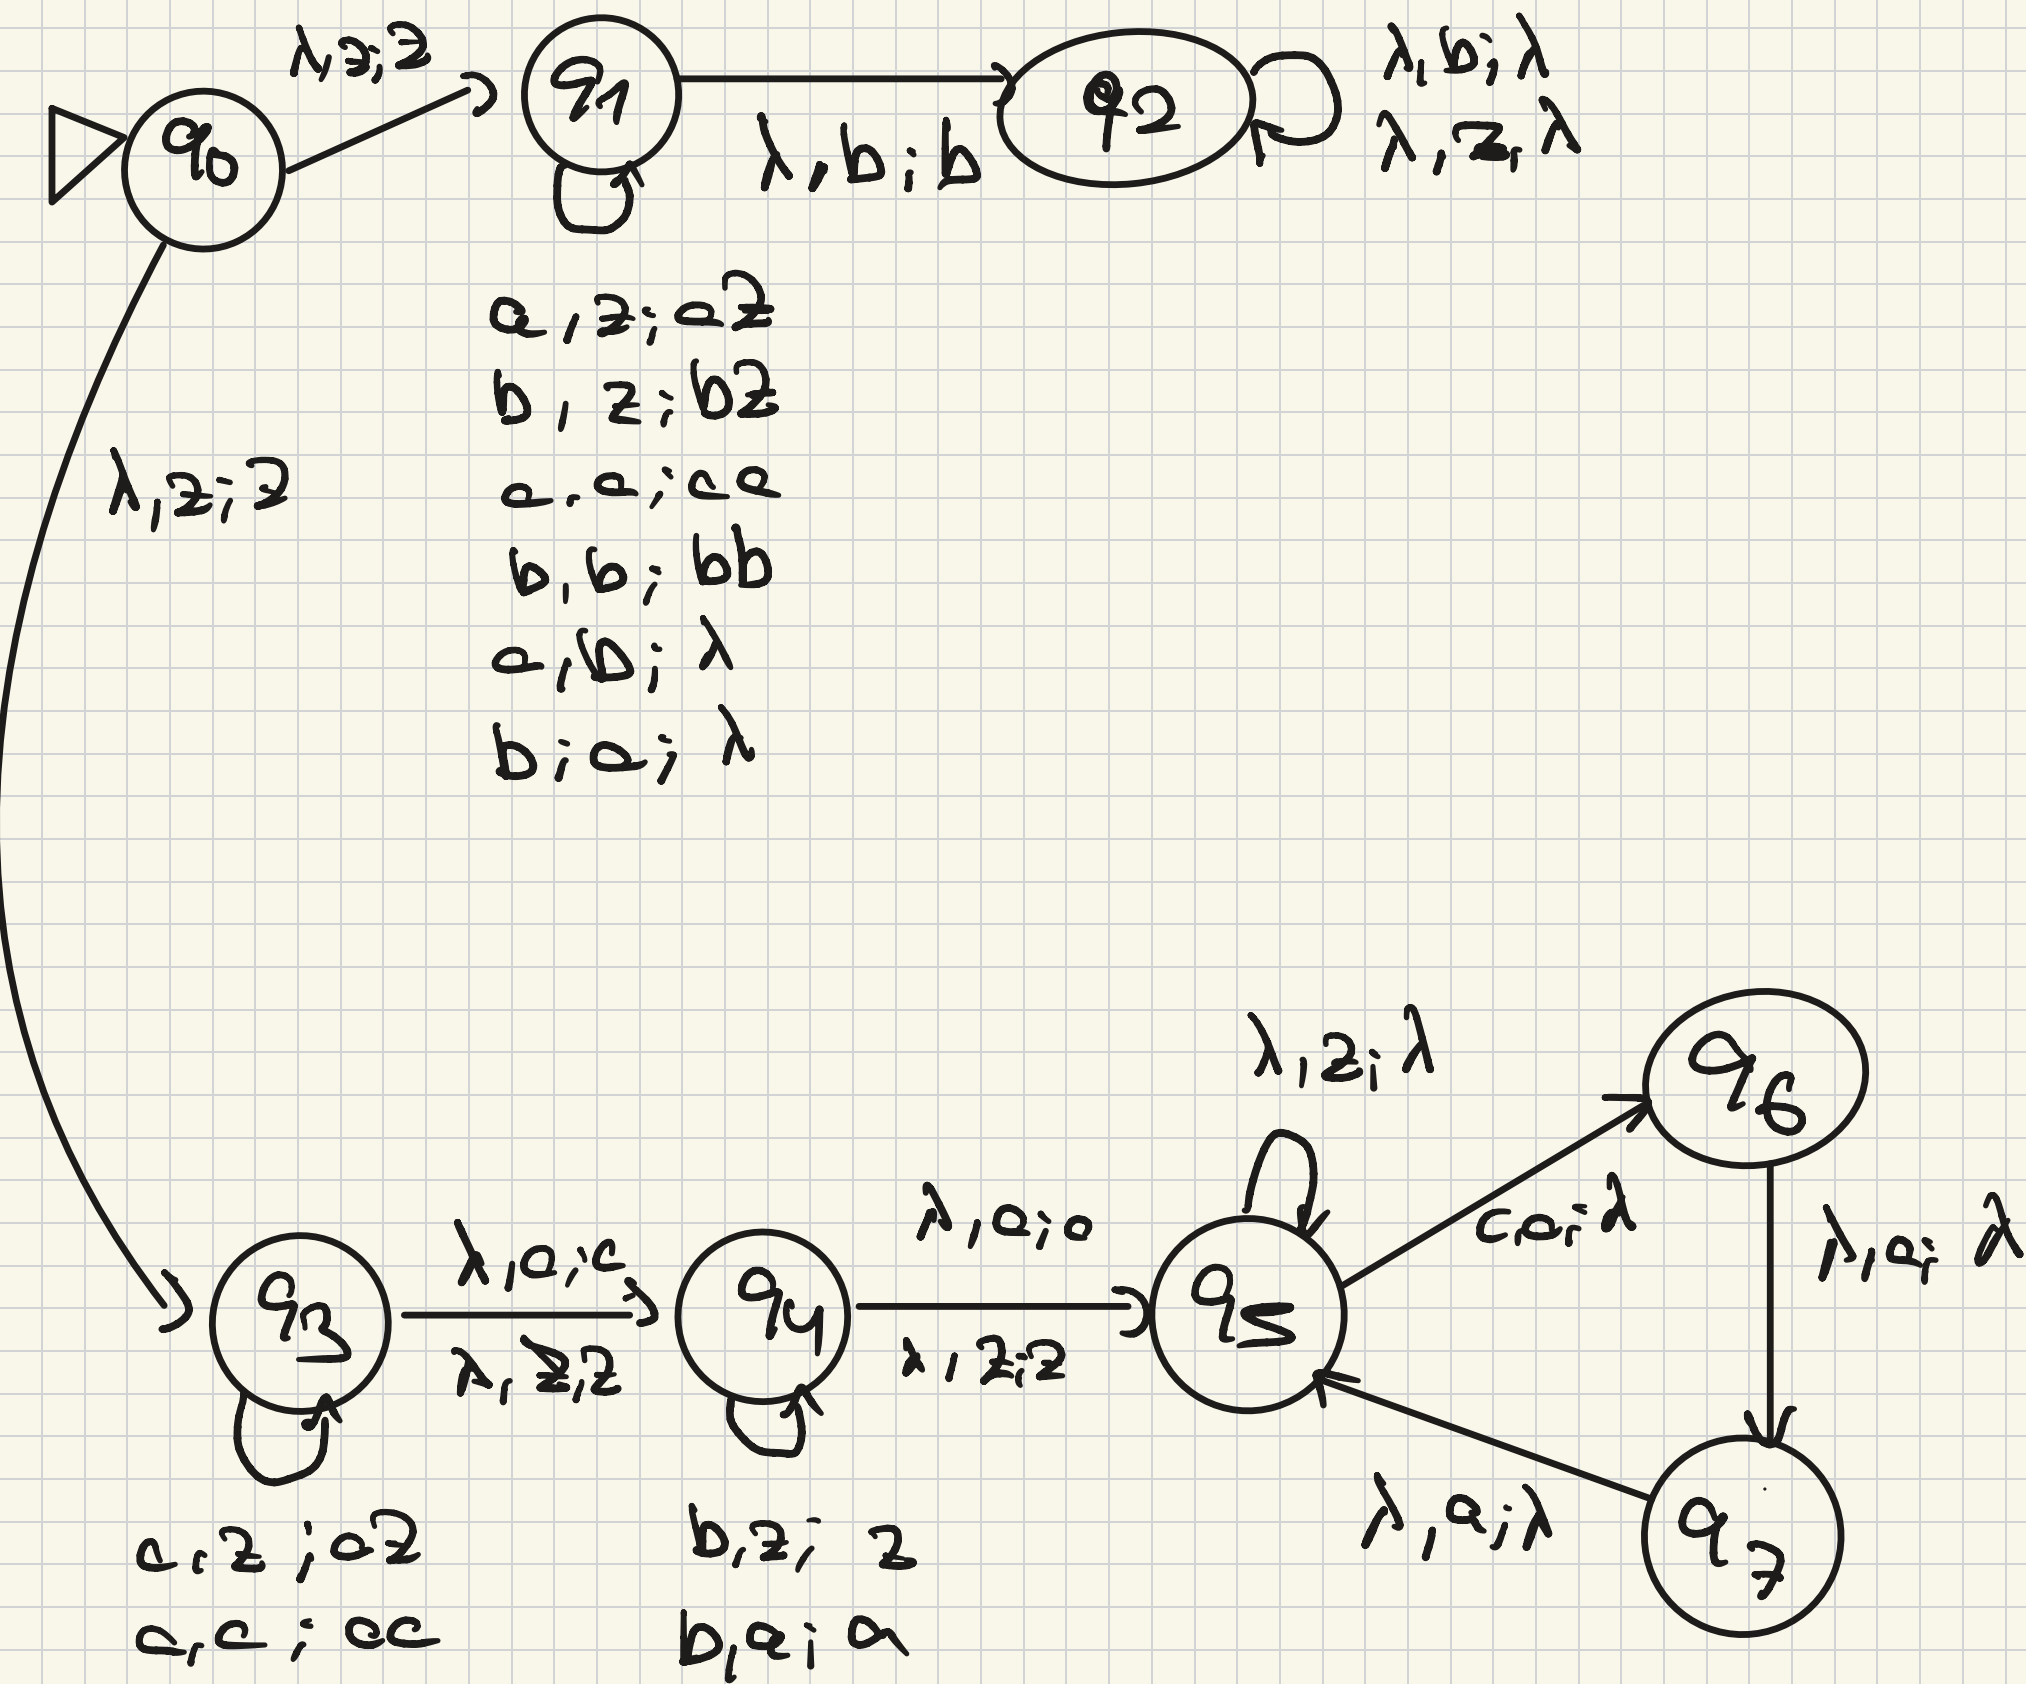 λ,z;z
q0
q1
λ,b;b
q2
λ,b;λ
λ,z,λ
a,z;az
b,z;bz
a,a;aa
b,b;bb
a,b;λ
b;a;λ
λ,z;z
q3
λ,a;a
λ,z,z
q4
λ,a;a
λ,z;z
q5
λ,z;λ
q6
c,a;λ
λ,a;λ
q7
λ,a;λ
a,z;az
a,a;aa
b,z;z
b,a;a